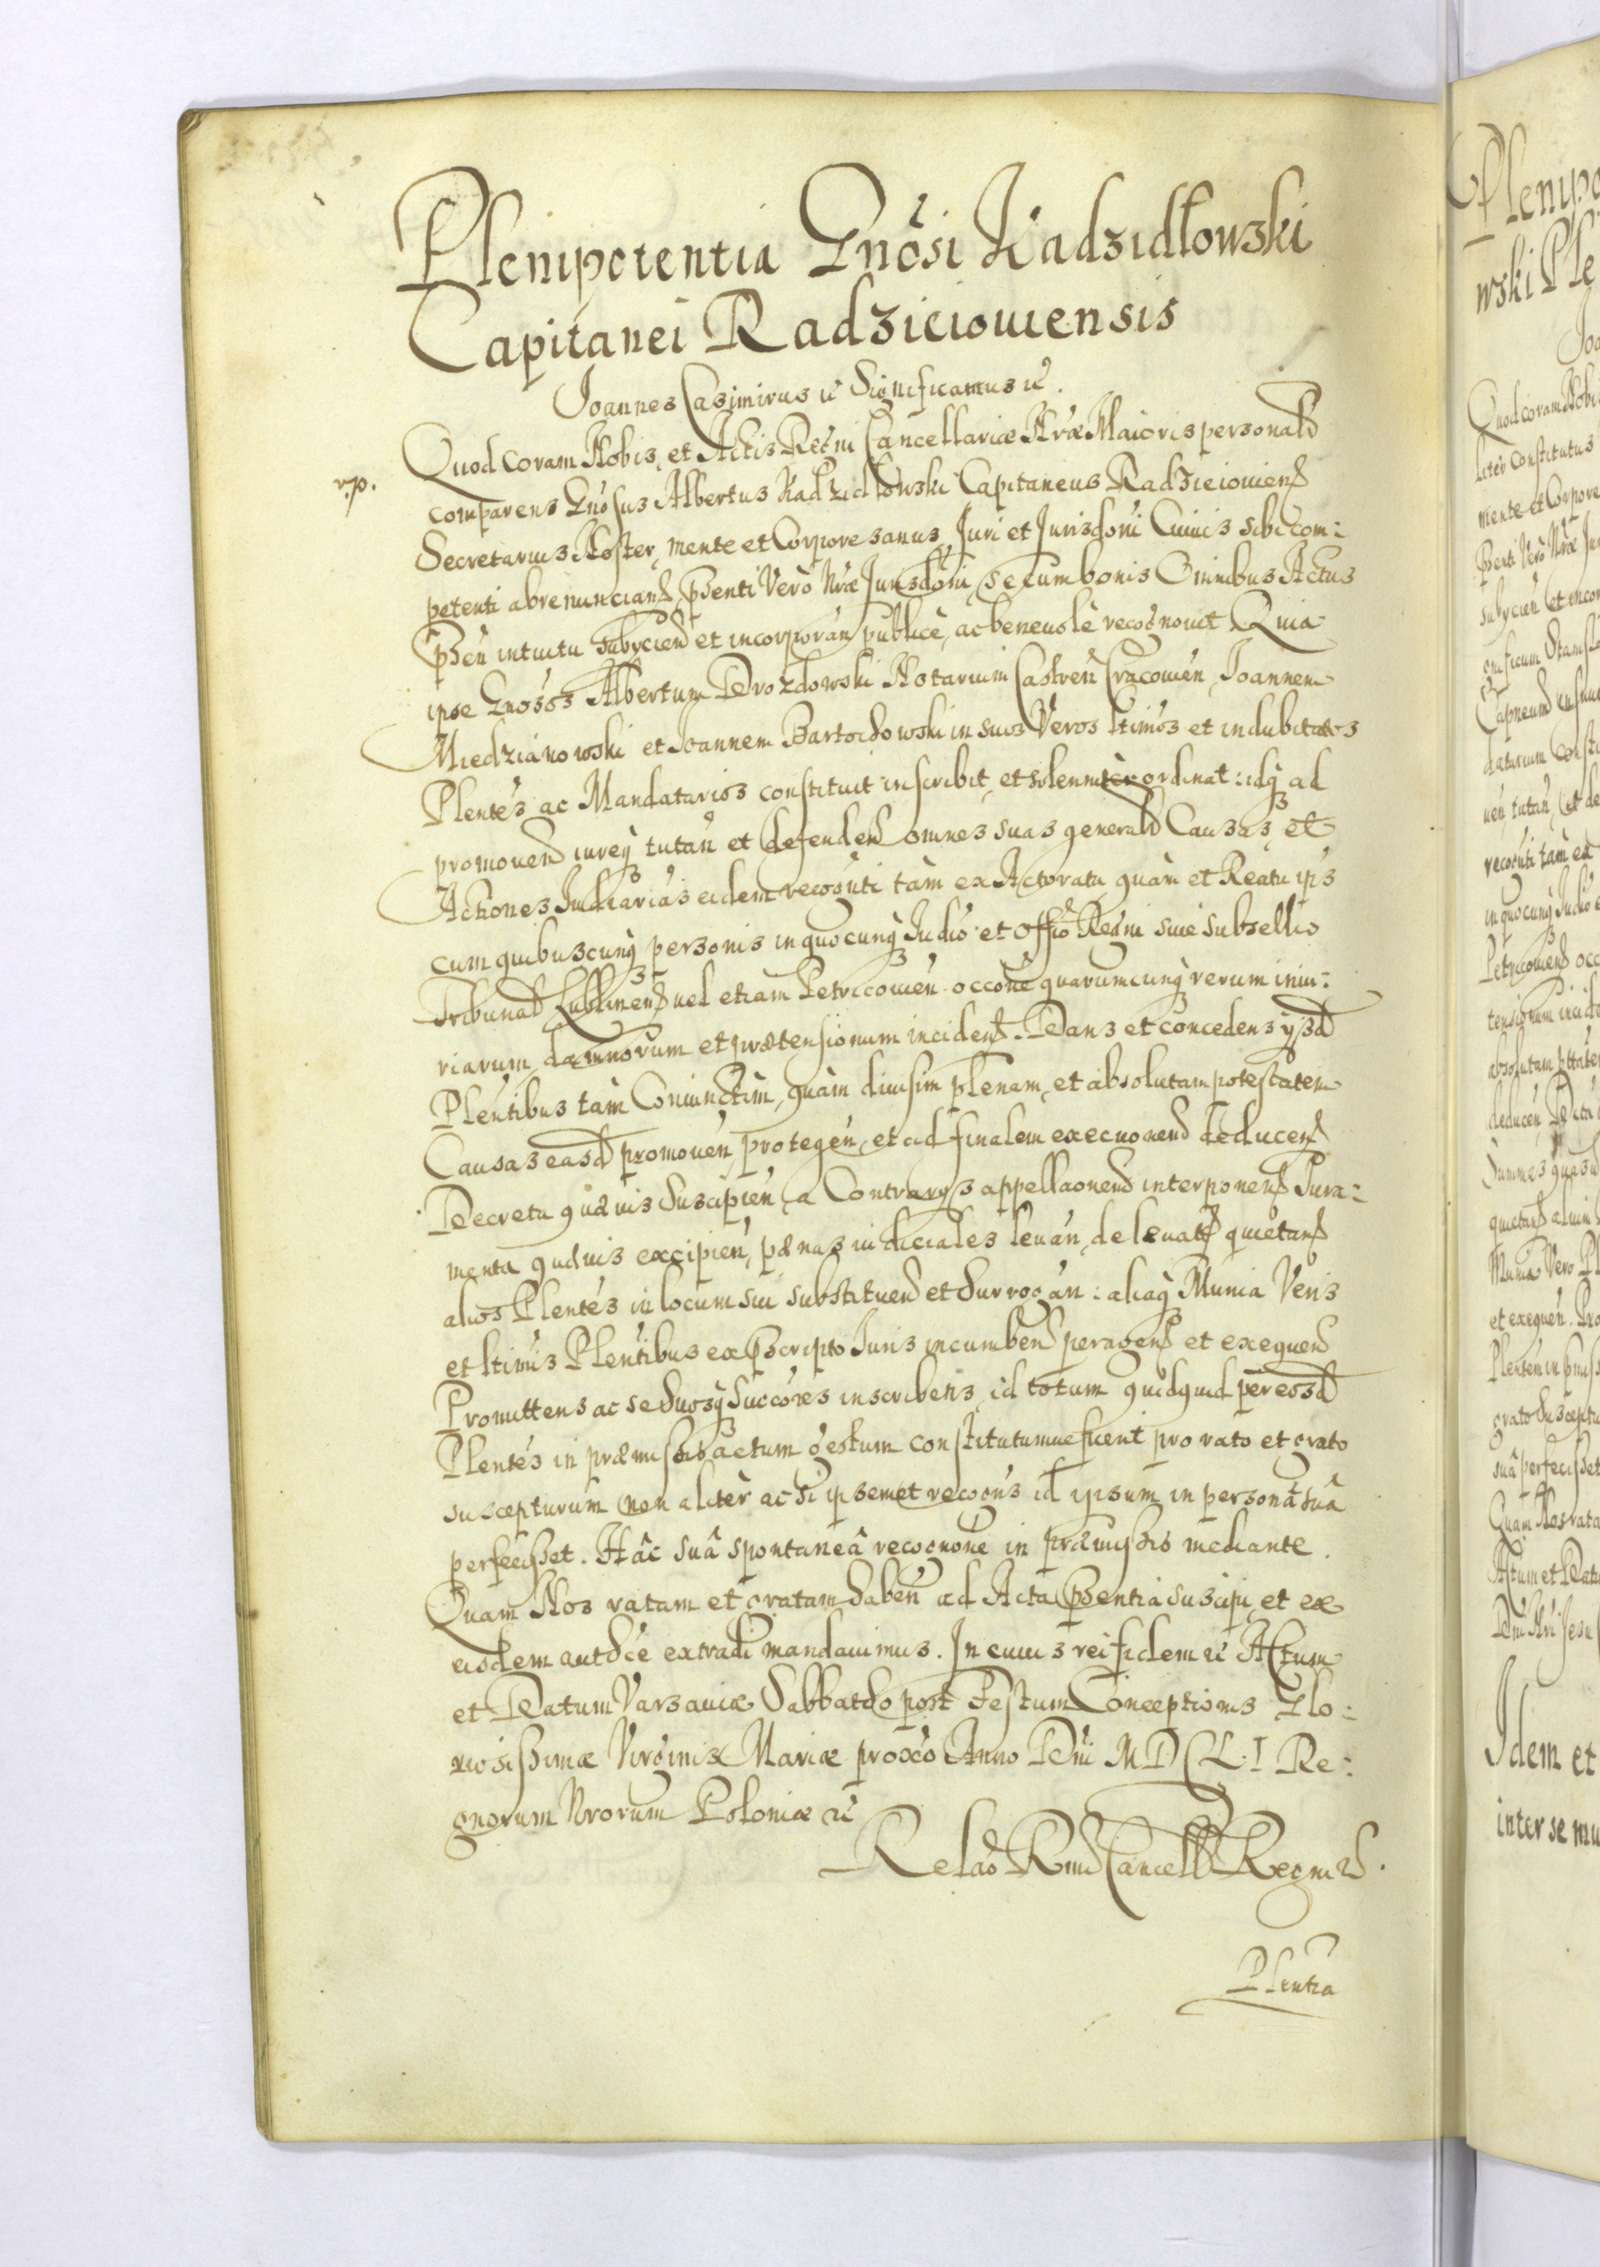 Plenipotentia Gnosi Kadzidłowski
Capitanei Radzieiouiensis
Joannes Casimirus etc Significamus etc.
Quod coram Nobis, et Actis Regni Cancellariæ Nræ Maioris personalr
comparens Gnosus Albertus Kadzidłowski Capitaneus Radzieiouien
Secretarius Noster, mente et Corpore sanus, Juri et Jurisdoni Cuiuis sibi com:
petenti abrenuncian, pnti Verò Nræ Jurisdoni, se cum bonis Omnibus Actus
pntis intuitu subycien et incorporan publicè, ac beneuolè recognouit Quia
ipse Gnosos Albertum Drozdowski Notarium Castren Cracouien, Joannem
Miedzianowski et Joannem Bartochowski in suos Veros ltimos et indubitatos
Plentes ac Mandatarios constituit inscribit, et solenniter ordinat: idq ad
promouen iureq tutan et defenden omnes suas general Causas et
Actiones Judiarias eidem recognti tàm ex Actoratu quàm et Reatu ips
cum quibuscunq personis in quocunq Judio et Offio Regni siue subsellio
Tribunal Lublinen uel etiam Petricouien occone quarumcunq rerum iniu:
riarum, damnorum et prætensionum inciden. Dans et concedens ysd
Plentibus tàm Coniunctim, quàm diuisim plenam, et absolutam potestatem
Causas easd promouen, protegen, et ad finalem execuonem deducen
Decreta quæuis suscipien, a Contrarys appellaonem interponen Jura:
menta quæuis excipien, pænas iudiciales leuan, de leuatis quietan
alios Plentes in locum sui substituen et surrogan: aliaq Munia Veris
et ltimis Plentibus ex pscripto Juris incumben peragen et exequen
Promittens ac se suosq succores inscribens, id totum quidquid per eosd
Plentes in præmissis actum gestum constitutumue fuerit pro rato et grato
suscepturum non aliter ac si ipsemet recogns id ipsum in personâ suâ
perfecisset. Hâc suâ spontaneâ recognone in præmissis mediante.
Quam Nos ratam et gratam haben ad Acta pntia suscipi, et ex
eisdem authce extradi mandauimus. In cuius rei fidem etc Actum
et Datum Varsauiæ Sabbatho post Festum Conceptionis Glo:
riosissimæ Virginis Mariæ proxo Anno Dni MDCLI Re:
gnorum Nrorum Poloniæ etc
Relao Rmi Cancell Regni
Plentia
Plenipo
wski Ple
Joa
Quod coram Nobis
liter constitutus
mente et Corpore
pnti Verò Nræ Ju
subycien et incor
Idem et
inter se mu